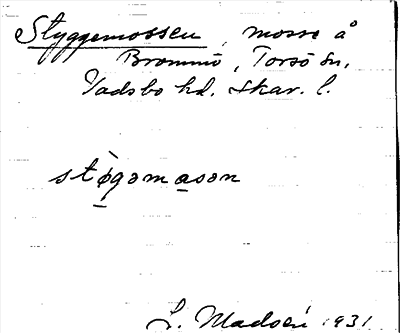 Styggemossen, mosse å
Brommö, Torsö sn,
Vadsbo hd. Skar. l.
stø̀gəmasən
L. Madsén 1931.